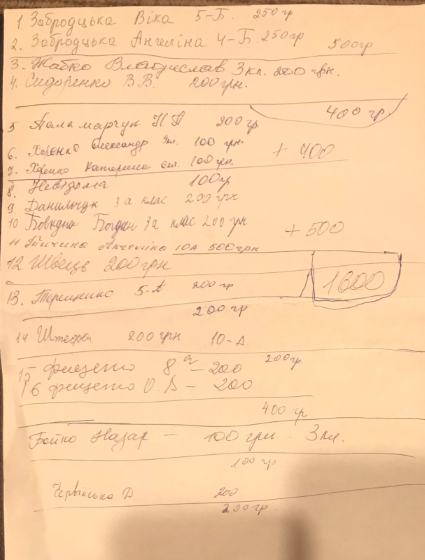 1 Забродцька Віка 5-Б. 250 гр
2. Забродцька Ангеліна 4-Б. 250 гр 500 гр
3. Владислав 3 кл. 200 грн.
4. Сидоренко В.В. 200 грн.
400 гр
5 Паламарчук Н 200 гр
6. Олександр 100 грн.
+ 400
7. Катерина 100 грн
8. Невідома 100 гр
9 Данильчук 3а клас 200 грн
10 Богдан 3а клас 200 грн
+ 500
11 Ангеліна 10А 500 грн
12 Швець 200 грн
1600
13. Терещенко 5-А 200 гр
200 гр
14 200 грн 10-А
200 гр.
15 Фищенко 8а - 200
16 Фищенко О.В - 200
400 гр
Бойко Назар - 100 грн 3 кл.
100 гр
200
200 гр.